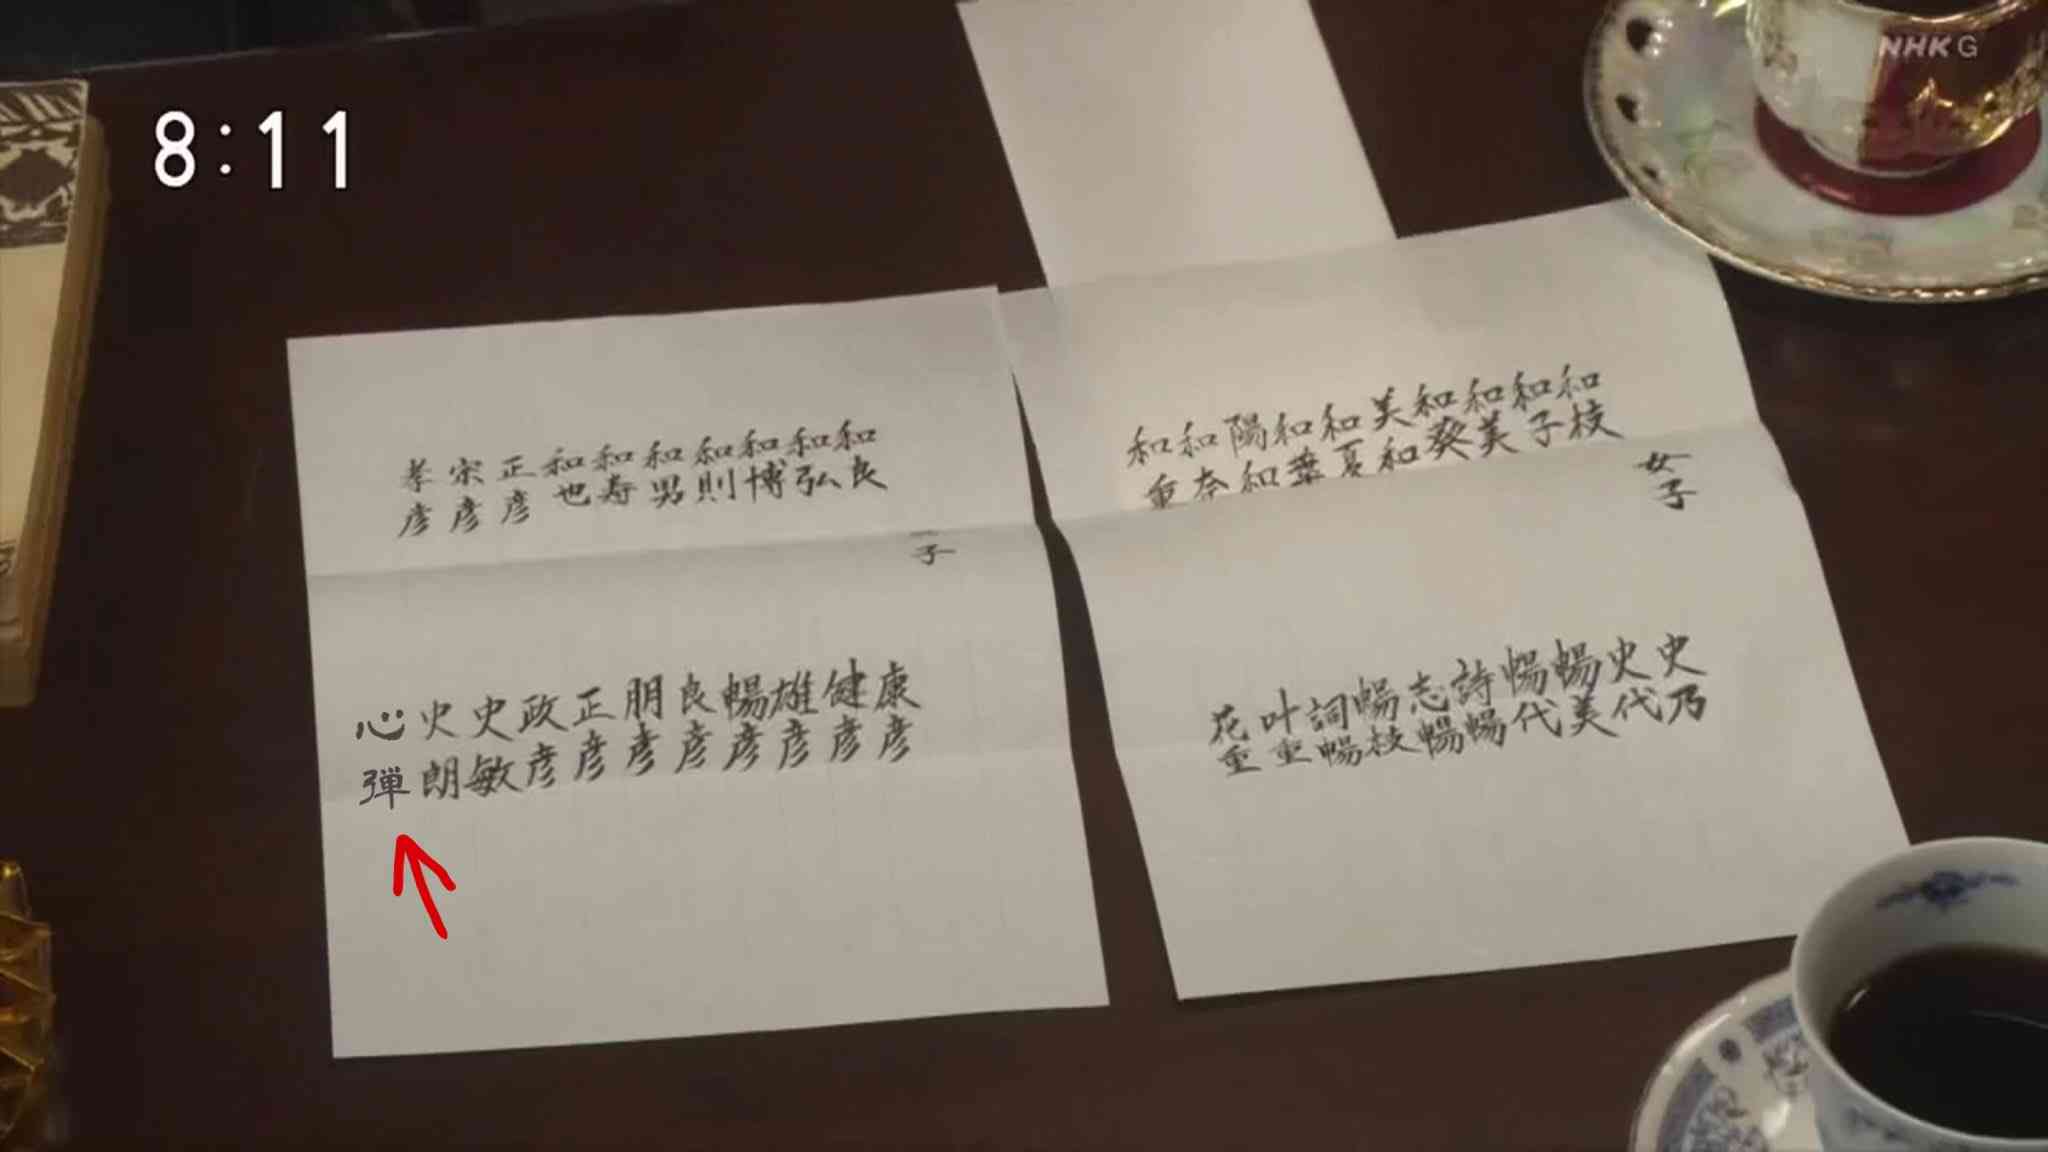 8:11
NHK G
女子
和枝
和子
和美
和葵
美和
和夏
和葉
陽和
和奈
和重
史乃
史代
暢美
暢代
詩暢
志暢
暢枝
詞暢
叶重
花重
子
和良
和弘
和博
和則
和男
和寿
和也
正彦
宗彦
孝彦
康彦
健彦
雄彦
暢彦
良彦
朋彦
正彦
政彦
史敏
史朗
心弾